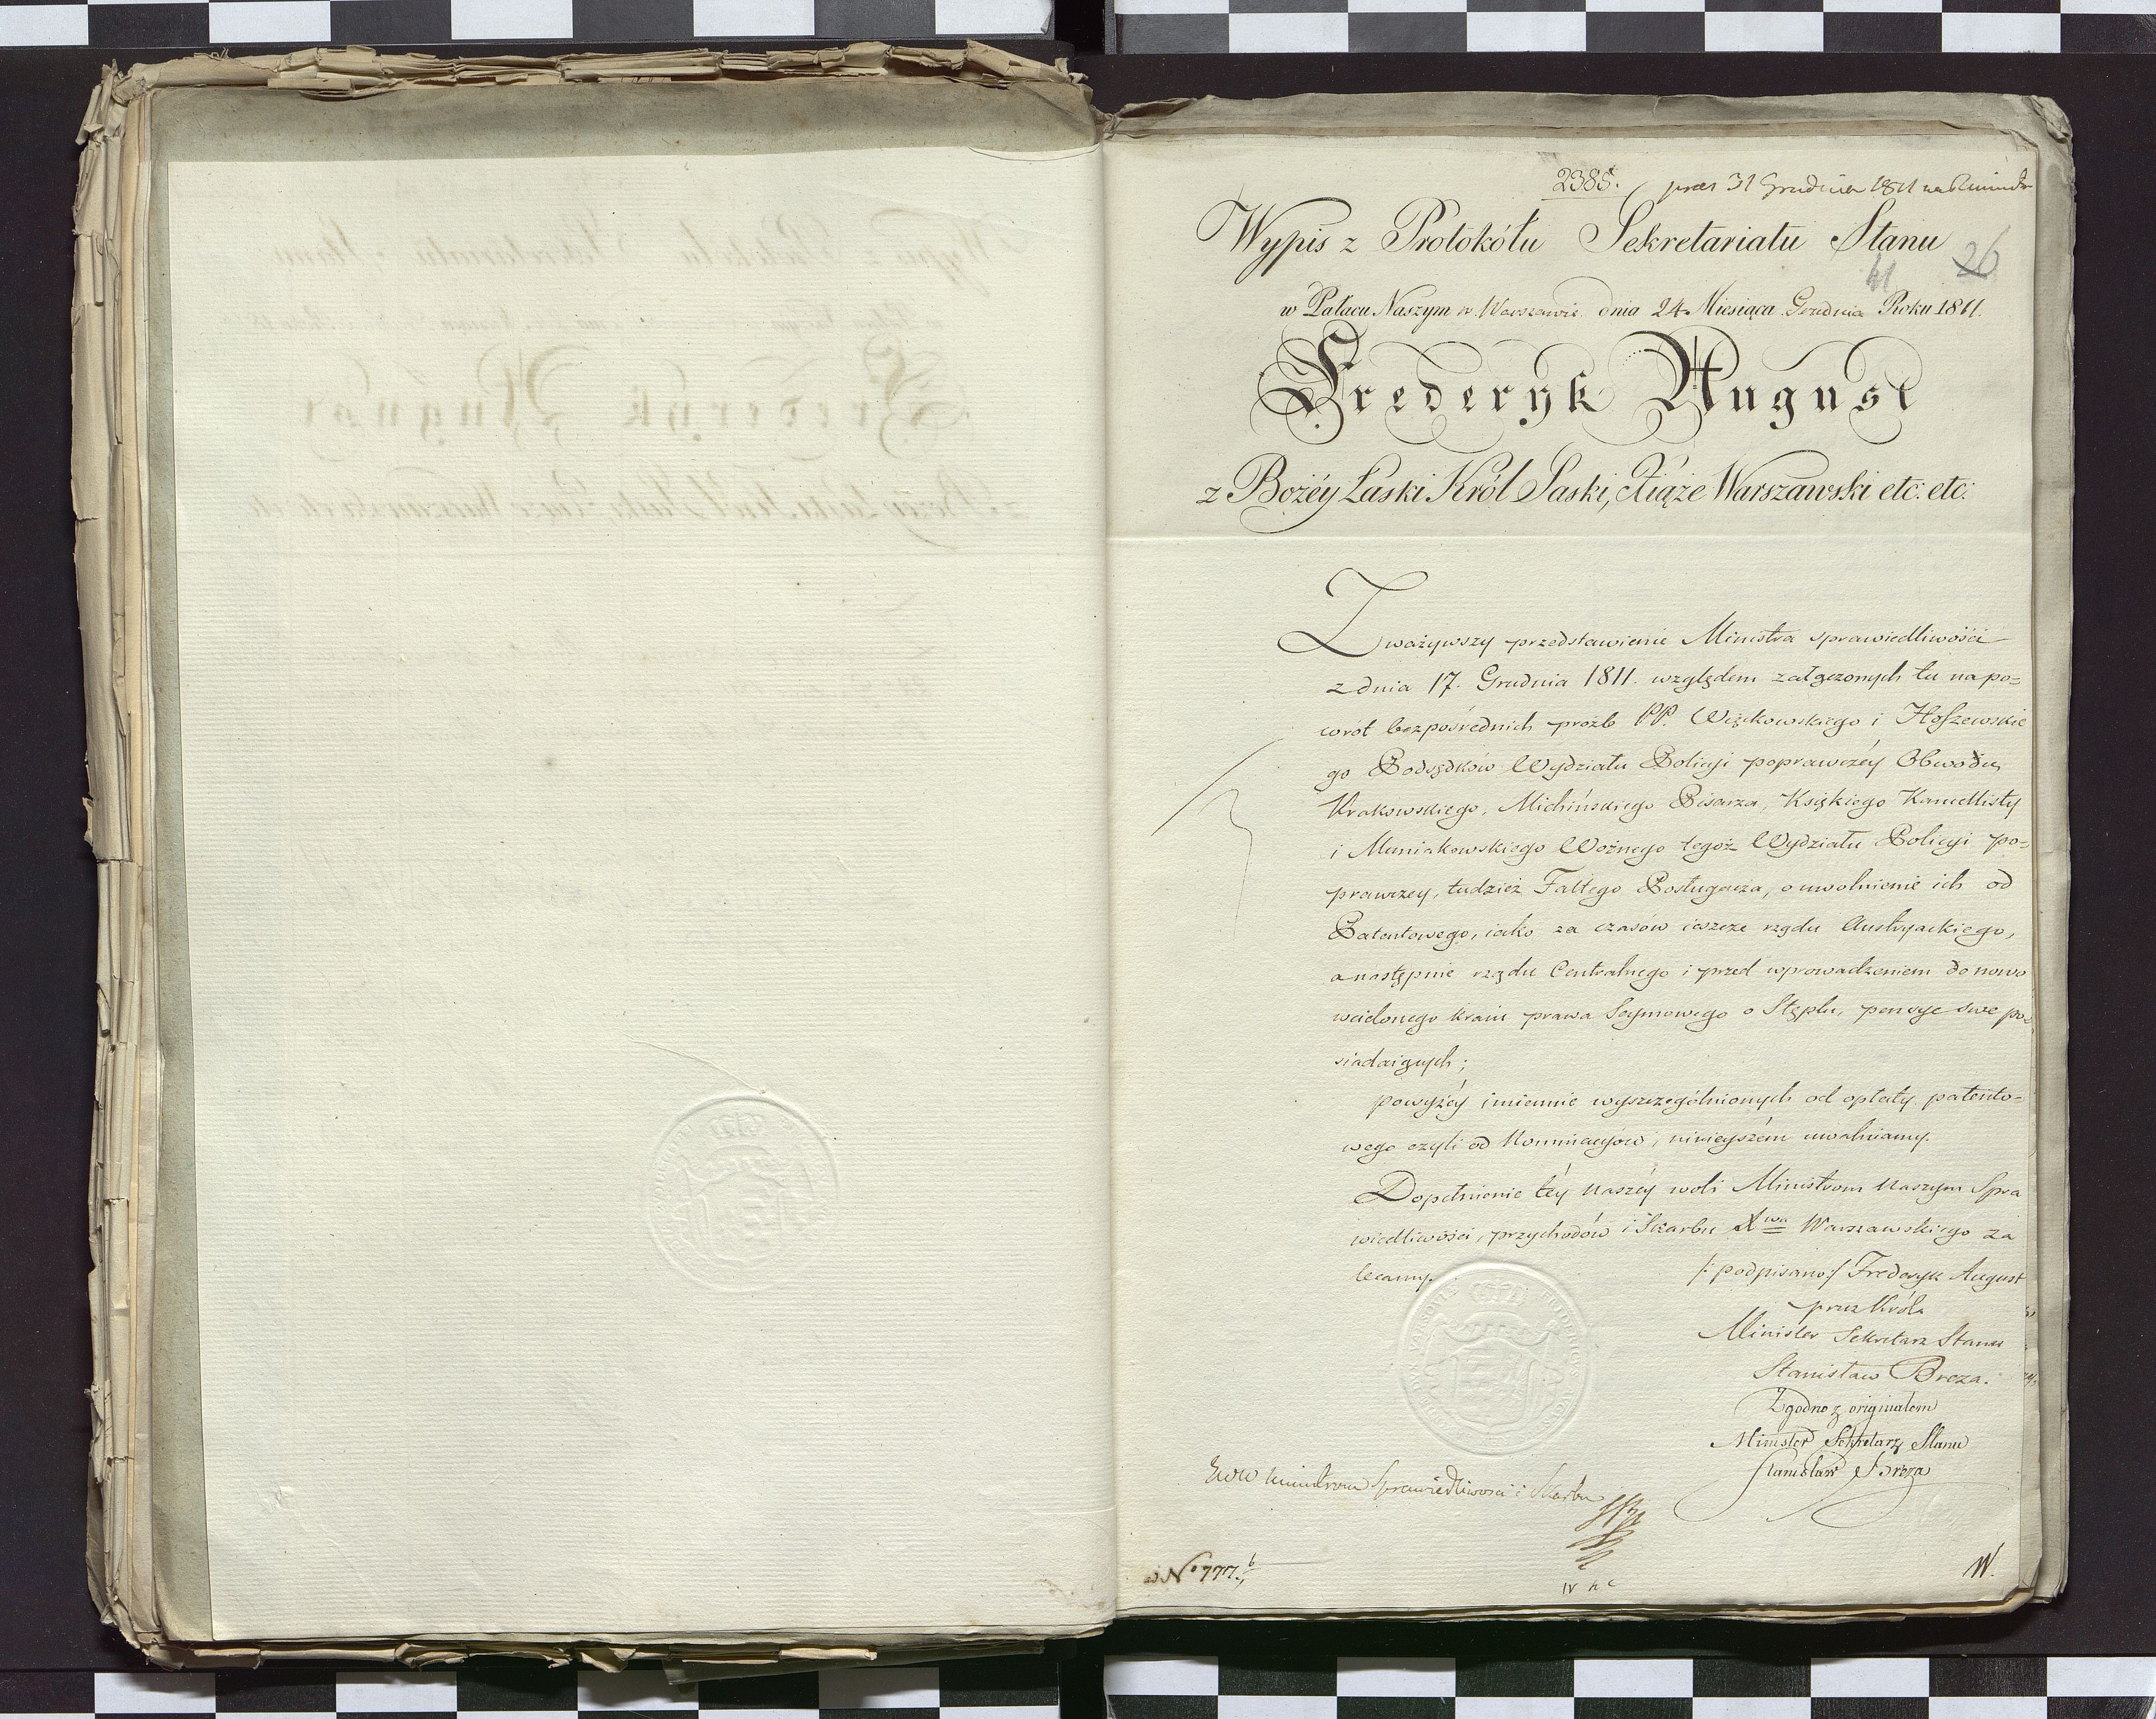 2385.
31 Grudnia 1811
Wypis z Protokółu Sekretariatu Stanu
41 26
w Pałacu Naszym w Warszawie dnia 24 Miesiąca Grudnia Roku 1811.
Frederyk August
z Bożéy Łaski Król Saski, Xiąże Warszawski etc: etc:
Zważywszy przedstawienie Ministra sprawiedliwości
z dnia 17. Grudnia 1811. względem załączonych tu napo=
wrót bezpośrednich proźb PP. Więckowskiego i
go Podsędków Wydziału Policyi poprawczéy Obwodu
Krakowskiego, Michińskiego Pisarza, Ksiąkiego Kancellisty
i Muniakowskiego Woźnego tegoż Wydziału Policyi po=
prawczey, tudzież Fałtego Posługacza, o uwolnienie ich od
Patentowego, iako za czasów ieszcze rządu Austryackiego,
a następnie rządu Centralnego i przed wprowadzeniem do nowo
wcielonego kraiu prawa Seymowego o Stęplu, pensye swe po=
siadaiących;
powyżéy imiennie wyszczególnionych od opłaty patento=
wego czyli od Nominacyów, ninieyszém uwalniamy.
Dopełnienie téy Naszéy woli Ministrom Naszym Spra
wiedliwości, przychodów i Skarbu Xwa Warszawskiego za
lecamy.
/: podpisano :/ Frederyk August
przez Króla
Minister Sekretarz Stanu
Stanisław Breza.
Zgodno z originałem
Minister Sekretarz Stanu
Stanisław Breza
Ministrom Sprawiedliwości i Skarbu
N° 777.
W.